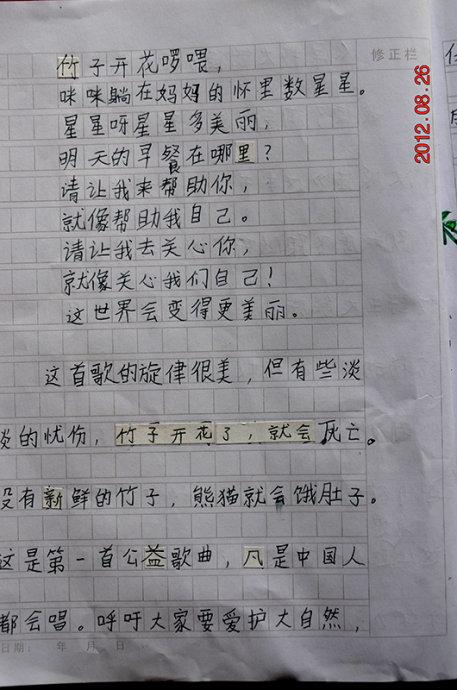 竹子开花啰喂，
咪咪躺在妈妈的怀里数星星。
星星呀星星多美丽，
明天的早餐在哪里？
请让我来帮助你，
就像帮助我自己。
请让我去关心你，
就像关心我们自己！
这世界会变得更美丽。
这首歌的旋律很美，但有些淡
淡的忧伤，竹子开花了，就会死亡。
没有新鲜的竹子，熊猫就会饿肚子。
这是第一首公益歌曲，凡是中国人
都会唱。呼吁大家要爱护大自然，
日期： 年 月 日
修正栏
2012.08.26